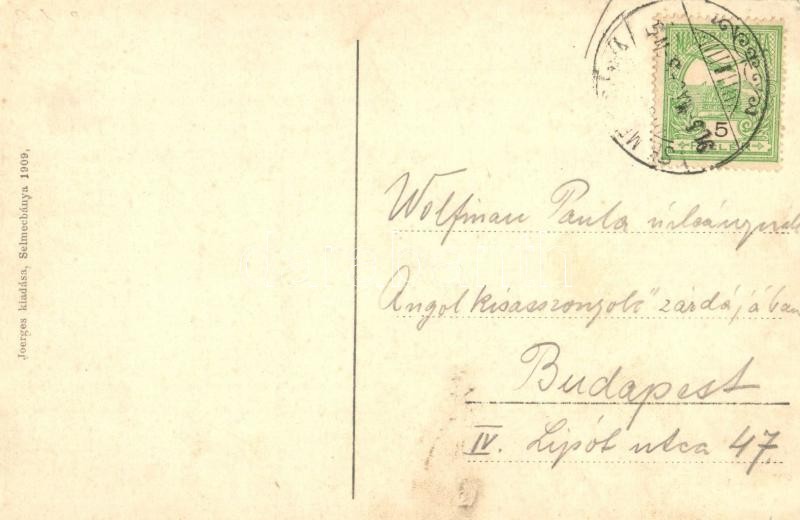 Joerges kiadása, Selmecbánya 1909.
5
FILLÉR
Wolfinau Paula úrleánynak
Angol kisasszonyok" zárdájában
Budapest
IV. Lipót utca 47.